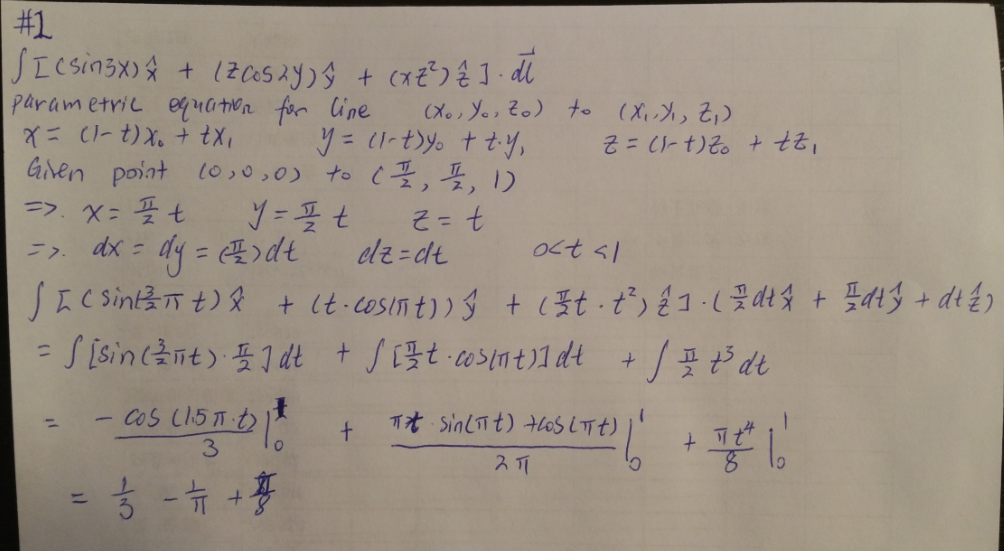 #1
∫[(sin3x)x̂ + (zcos2y)ŷ + (xz²)ẑ]·dl⃗
parametric equation for line (x₀, y₀, z₀) to (x₁, y₁, z₁)
x = (1-t)x₀ + tx₁ y = (1-t)y₀ + t·y₁ z = (1-t)z₀ + tz₁
Given point (0,0,0) to (π/2, π/2, 1)
=>. x = π/2 t y = π/2 t z = t
=>. dx = dy = (π/2)dt dz = dt 0<t<1
∫[(sin(3/2 π t) x̂ + (t·cos(πt)) ŷ + (π/2 t · t²) ẑ]·(π/2 dt x̂ + π/2 dt ŷ + dt ẑ)
= ∫[sin(3/2 πt)·π/2] dt + ∫[π/2 t·cos(πt)] dt + ∫ π/2 t³ dt
= -cos(1.5π·t)/3 |₀¹ + πt·sin(πt)+cos(πt)/2π |₀¹ + πt⁴/8 |₀¹
= 1/3 - 1/π + π/8